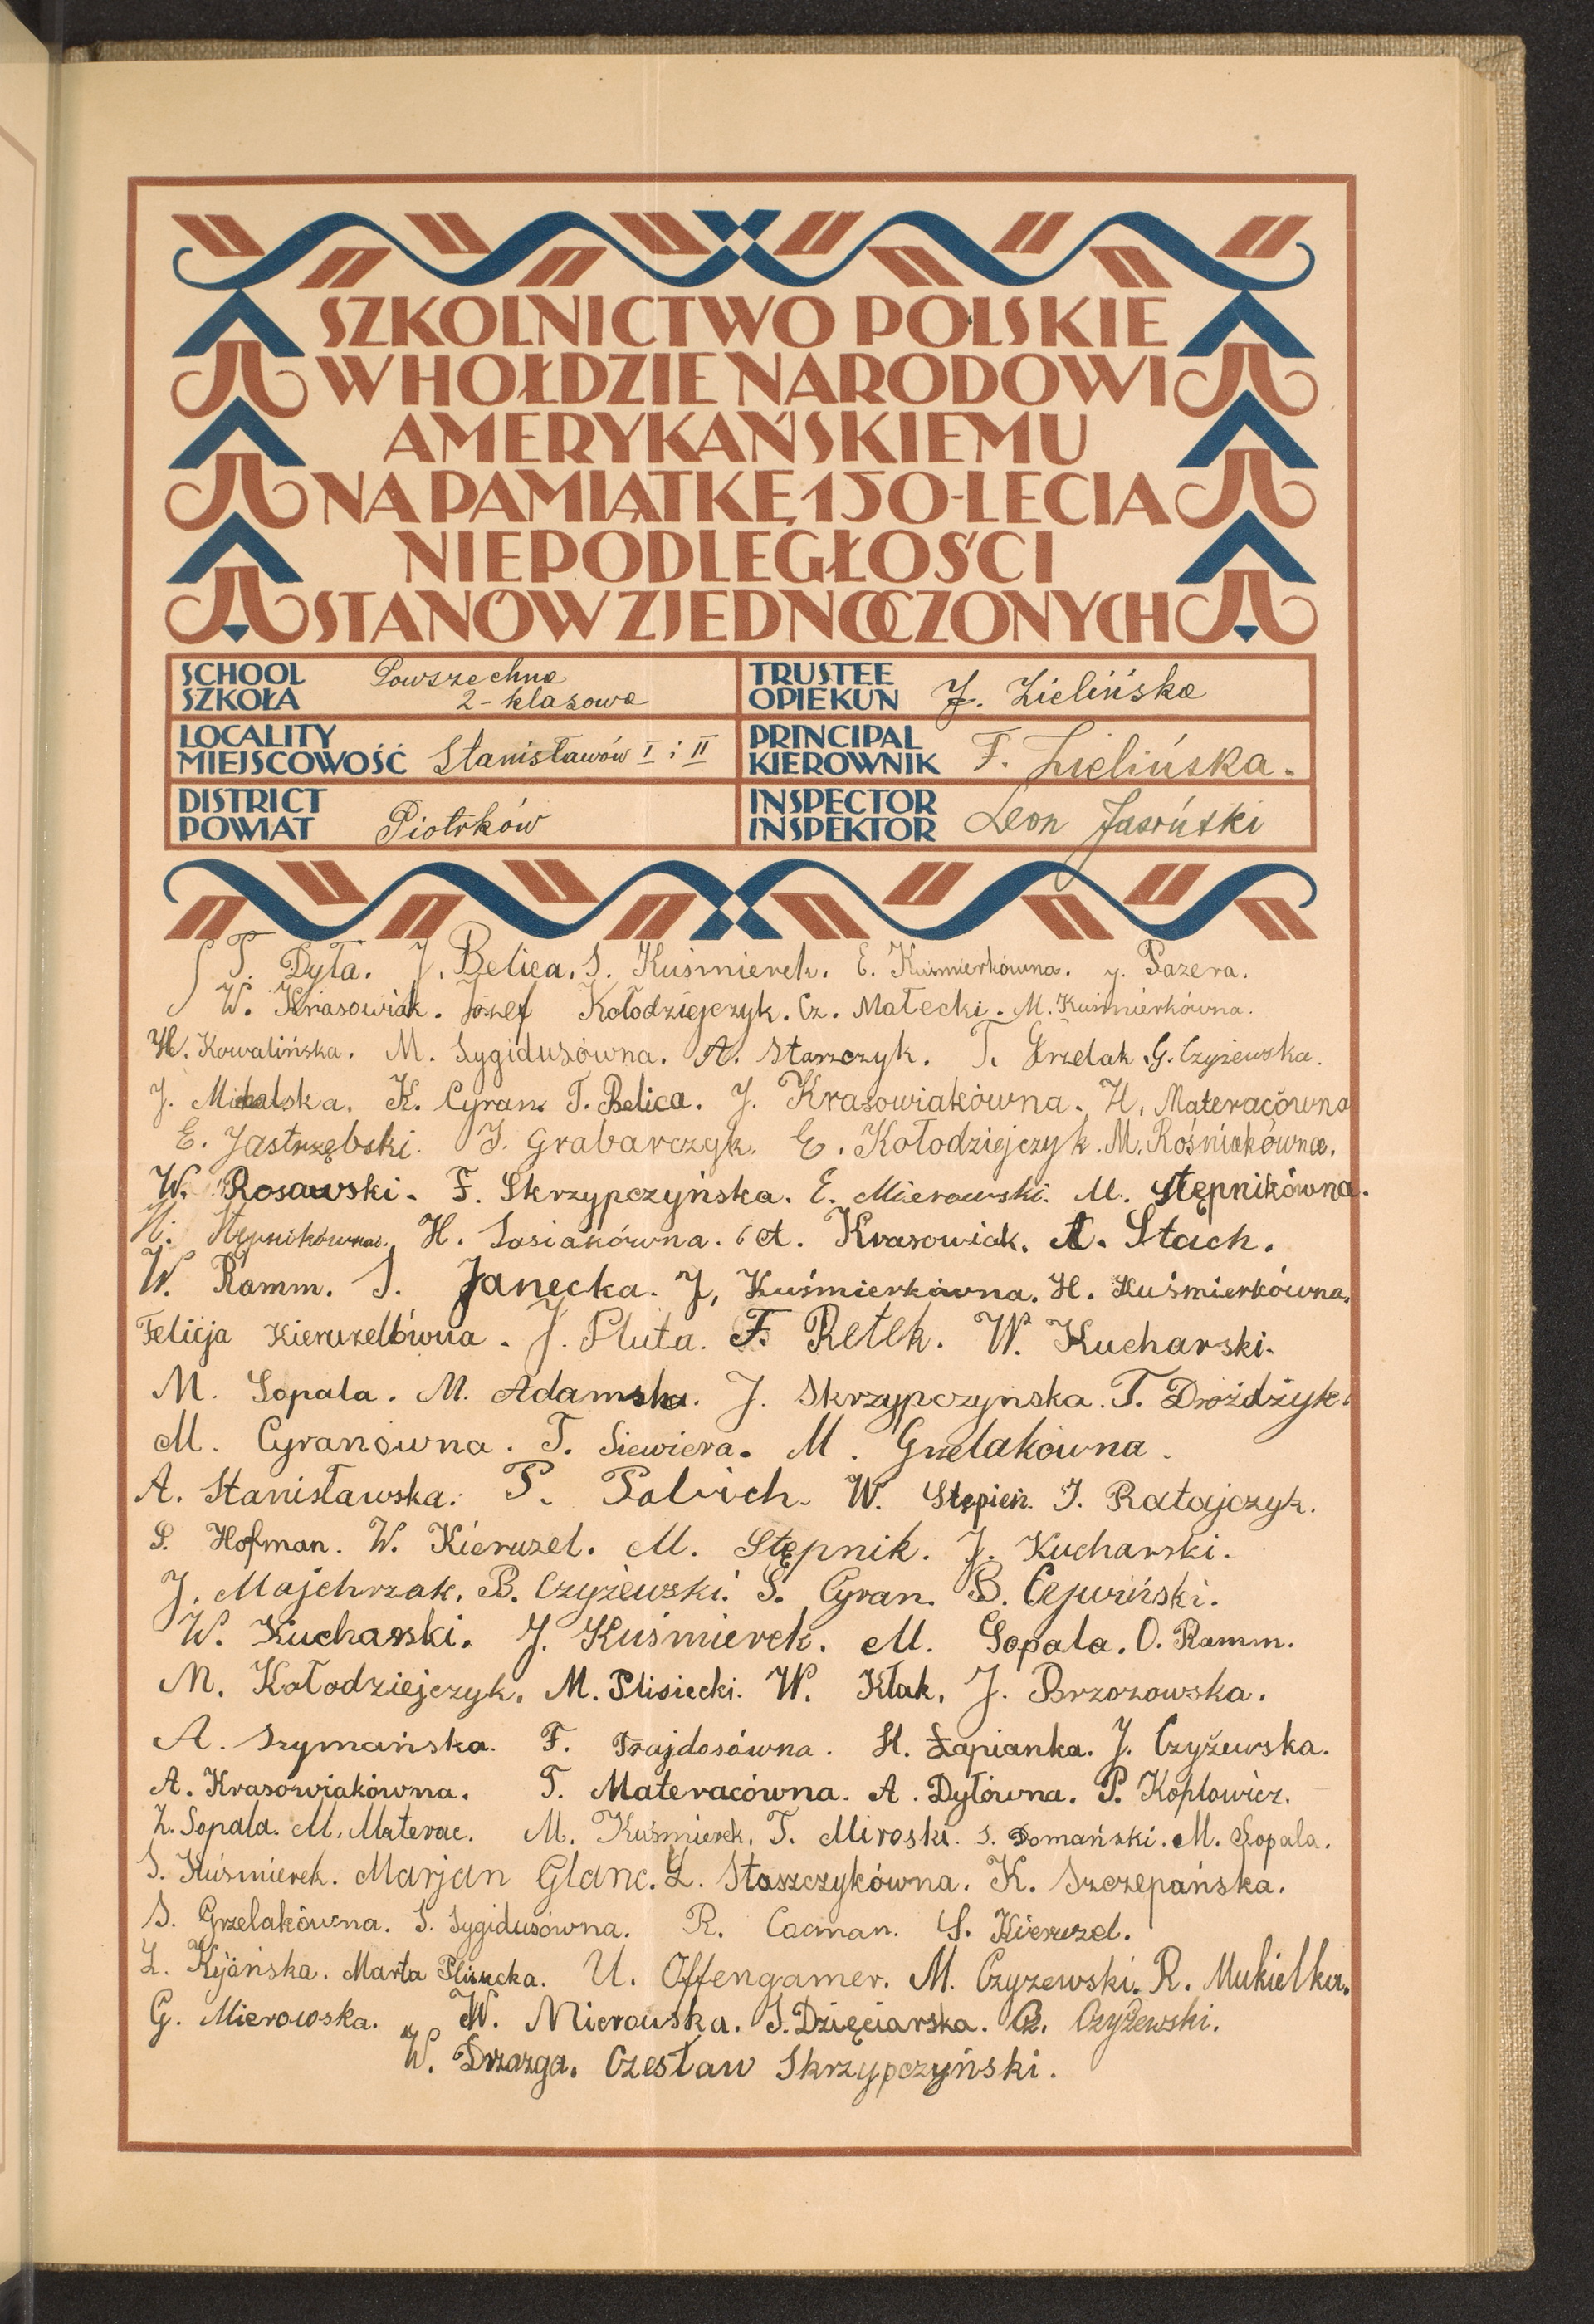 SZKOLNICTWO POLSKIE
W HOŁDZIE NARODOWI
AMERYKAŃSKIEMU
NA PAMIĄTKĘ 150-LECIA
NIEPODLEGŁOŚCI
STANÓW ZJEDNOCZONYCH
SCHOOL
SZKOŁA
Powszechna
2-klasowa
TRUSTEE
OPIEKUN
J. Zielińska
LOCALITY
MIEJSCOWOŚĆ
Stanisławów I i II
PRINCIPAL
KIEROWNIK
F. Zielińska.
DISTRICT
POWIAT
Piotrków
INSPECTOR
INSPEKTOR
Leon Jasiński
T. Dyła. J. Belica. S. Kuśmierek. E. Kuśmierkówna. J. Pazera.
W. Krasowiak. Józef Kołodziejczyk. Cz. Małecki. M. Kuśmierkówna.
H. Kowalińska. M. Sygidusówna. A. Starzczyk. T. Grzelak. G. Czyżewska.
J. Michalska. K. Cyran. T. Belica. J. Krasowiakówna. H. Materacówna
E. Jastrzębski. J. Grabarczyk. E. Kołodziejczyk. M. Rośniakówna.
W. Rosawski. F. Skrzypczyńska. E. Mierowski. M. Stępnikówna.
Stępnikówna. H. Sasiakówna. A. Krasowiak. A. Stach.
W. Ramm. S. Janecka. J. Kuśmierkówna. H. Kuśmierkówna.
Felicja Kieruzelówna. J. Pluta. F. Retek. W. Kucharski.
M. Sopala. M. Adamska. J. Skrzypczyńska. T. Dróżdżyk.
M. Cyranówna. T. Siewiera. M. Grzelakówna.
A. Stanisławska. P. W. Stępień. J. Ratajczyk.
S. Hofman. W. Kieruzel. M. Stępnik. J. Kucharski.
J. Majchrzak. B. Czyżewski. S. Cyran. B.
W. Kucharski. J. Kuśmierek. M. Sopala. O. Ramm.
M. Kołodziejczyk. M. Plisiecki. W. Kłak. J. Brzozowska.
A. Szymańska. F. Trajdosówna. H. Łapianka. J. Czyżewska.
A. Krasowiakówna. T. Materacówna. A. Dyłówna. P. Koplowicz.
Z. Sopala. M. Materac. M. Kuśmierek. T. Miroski. S. Domański. M. Sopala.
S. Kuśmierek. Marjan Glanc. Z. Staszczykówna. K. Szczepańska.
S. Grzelakówna. S. Sygidusówna. R. Cacman. S. Kieruzel.
Z. Kijańska. Marta Plisiecka. U. Offengamer. M. Czyżewski. R. Mukielka.
G. Mierowska. W. Mierowska. S. Dzięciarska. Cz. Czyżewski.
W. Drzazga. Czesław Skrzypczyński.